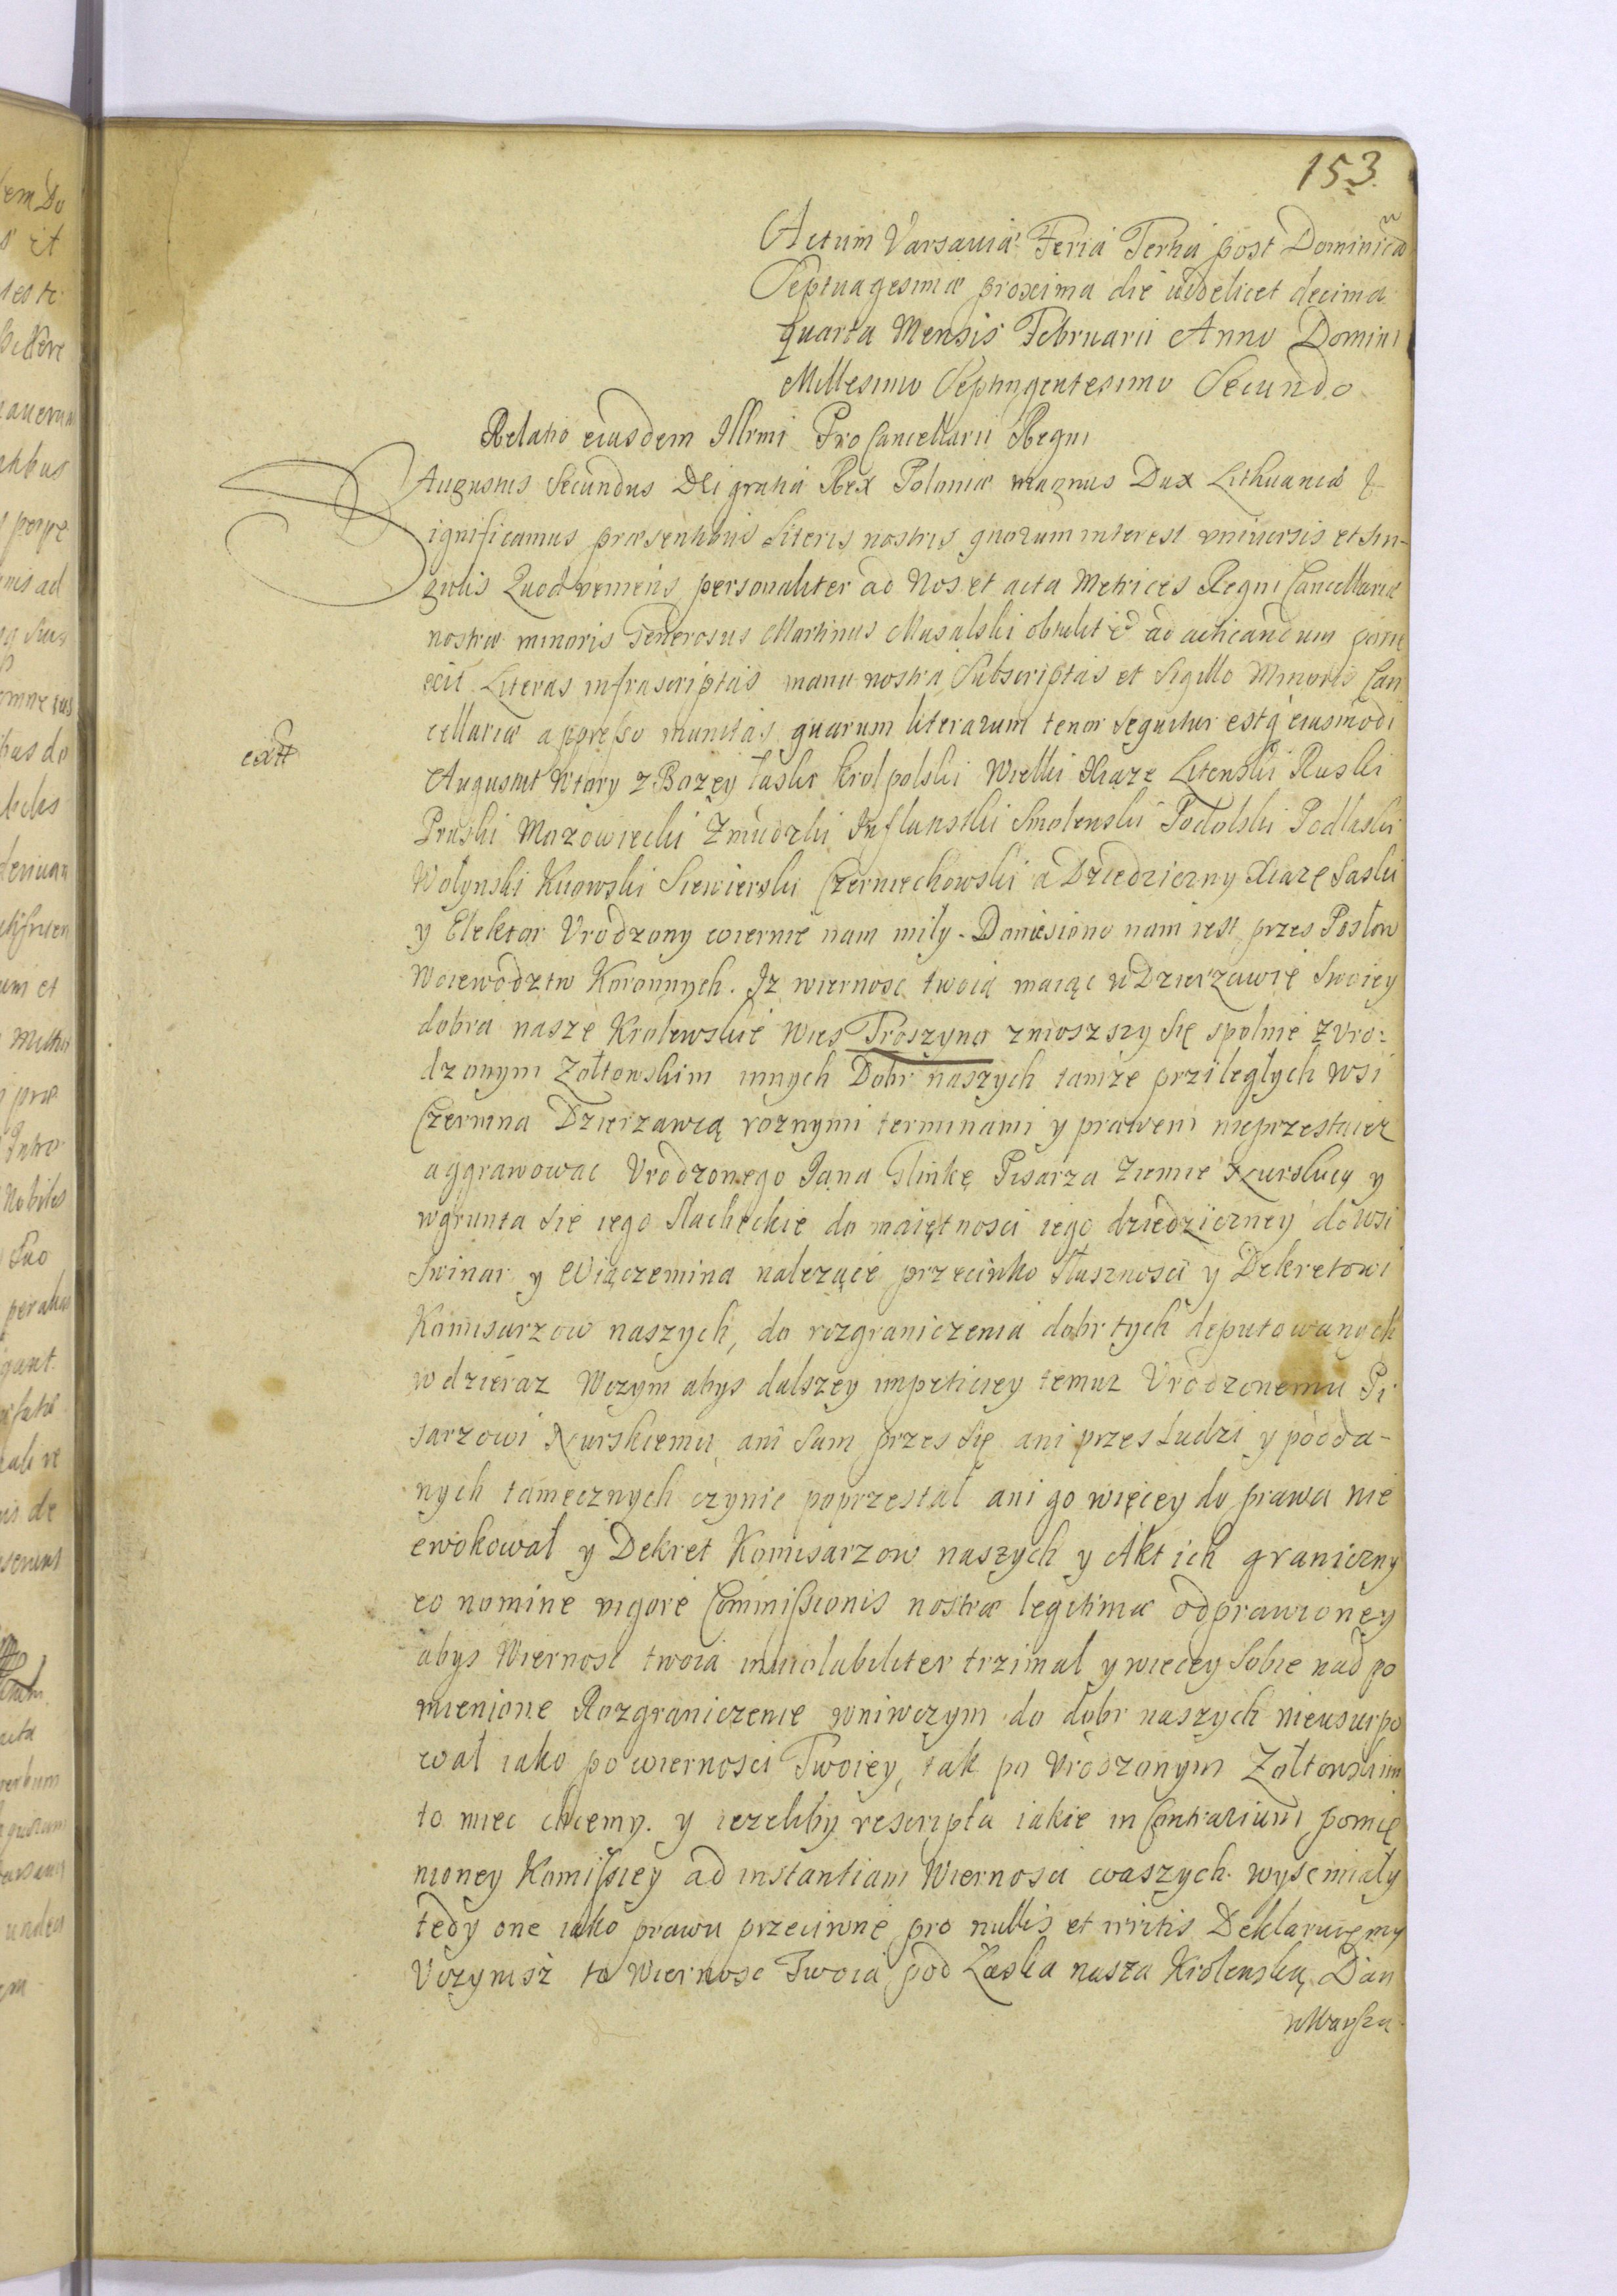 153.
Actum Varsaviæ Feria Tertia post Dominicã
Septuagesimæ proxima die videlicet decima
quarta Mensis Februarii Anno Domini
Millesimo Septingentesimo Secundo
Relatio eiusdem Illrmi Pro Cancellarii Regni
Augustus Secundus Dei gratia Rex Poloniæ magnus Dux Lithuaniæ &
Significamus præsentibus Literis nostris quorum interest vniversis et sin-
gulis Quod veniens personaliter ad Nos et acta Metrices Regni Cancellariæ
nostræ minoris Generosus Martinus Masalski obtulit et ad acticandum porre
xit Literas infrascriptas manu nostra Subscriptas et Sigillo Minoris Can
cellariæ appresso munitas, quarum literarum tenor sequitur estq eiusmodi
extt
August Wtory z Bozey łaski Krol polski Wielki Xiąze Litewski Ruski
Pruski Mazowiecki Zmudzki Inflanski Smolenski Podolski Podlaski
Wołynski Kiiowski Siewierski Czerniechowski a Dziedziczny Xiaze Saski
y Elektor Vrodzony wiernie nam miły. Doniesiono nam iest przes Posłow
Woiewodztw Koronnych. Iz wiernosc twoia maiąc w Dzierzawie Swoiey
dobra nasze Krolewskie Wies Troszyno zniosszy się spolnie z Vro:
dzonym Zołtowskim innych Dobr naszych tamze prziległych wsi
Czermna Dzierzawcą roznymi terminami y prawem nieprzestaiesz
aggrawowac Vrodzonego Jana Glinkę Pisarza Ziemie Nurskiey y
w grunta sie iego Slacheckie do maiętnosci iego dziedziczney do wsi
Swinar y Wiączemina nalezące przeciwko słusznosci y Dekretowi
Komisarzow naszych, do rozgraniczenia dobr tych deputowanych
wdzieraz Wczym abys dalszey impeticiey temuz Vrodzonemu Pi
sarzowi Nurskiemu ani sam przes się ani przes Ludzi y podda-
nych tamecznych czynic poprzestał ani go więcey do prawa nie
ewokował y Dekret Komisarzow naszych y Akt ich graniczny
eo nomine vigore Commissionis nostræ legitimæ odprawioney
abys Wiernosc twoia inviolabiliter trzimał y wiecey sobie nad po
mienione Rozgraniczenie wniwczym do dobr naszych nieusurpo
wał iako po wiernosci Twoiey, tak po Vrodzonym Zołtowskim
to miec chcemy. y iezeliby rescripta iakie in Contrarium pomie
nioney Komissiey ad instantiam Wiernosci waszych wysc miały
tedy one iako prawu przeciwne pro nullis et irritis Deklaruiemy
Vczynisz to Wiernosc Twoia pod Łaska nasza Krolewską. Dan
w Warsza